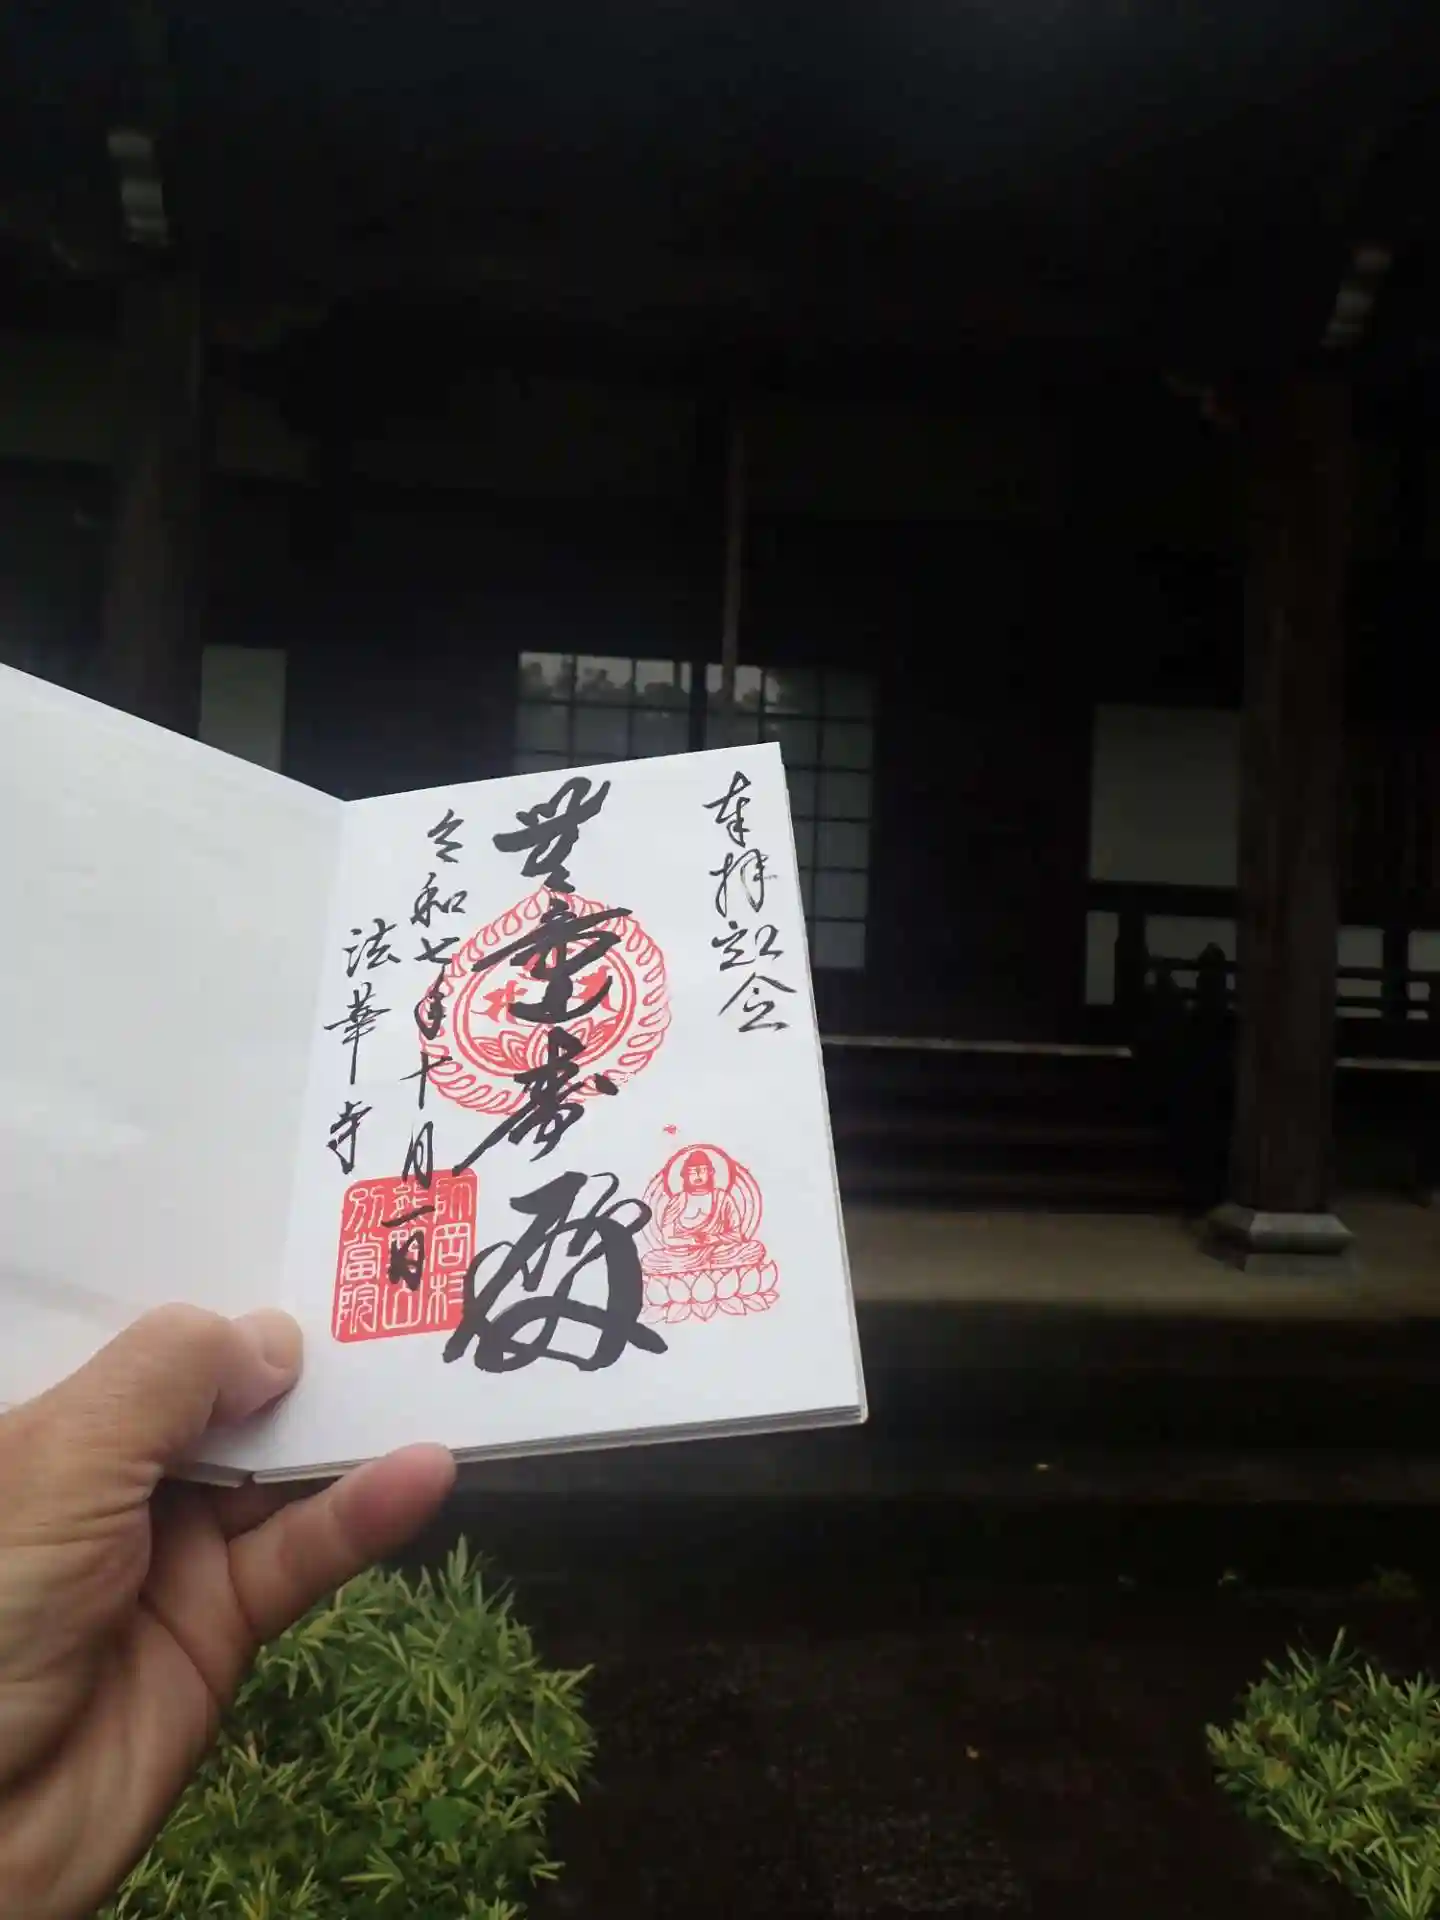 奉拝記念
無量寿殿
令和七年十月一日
法華寺
片岡村
熊野山
別當院